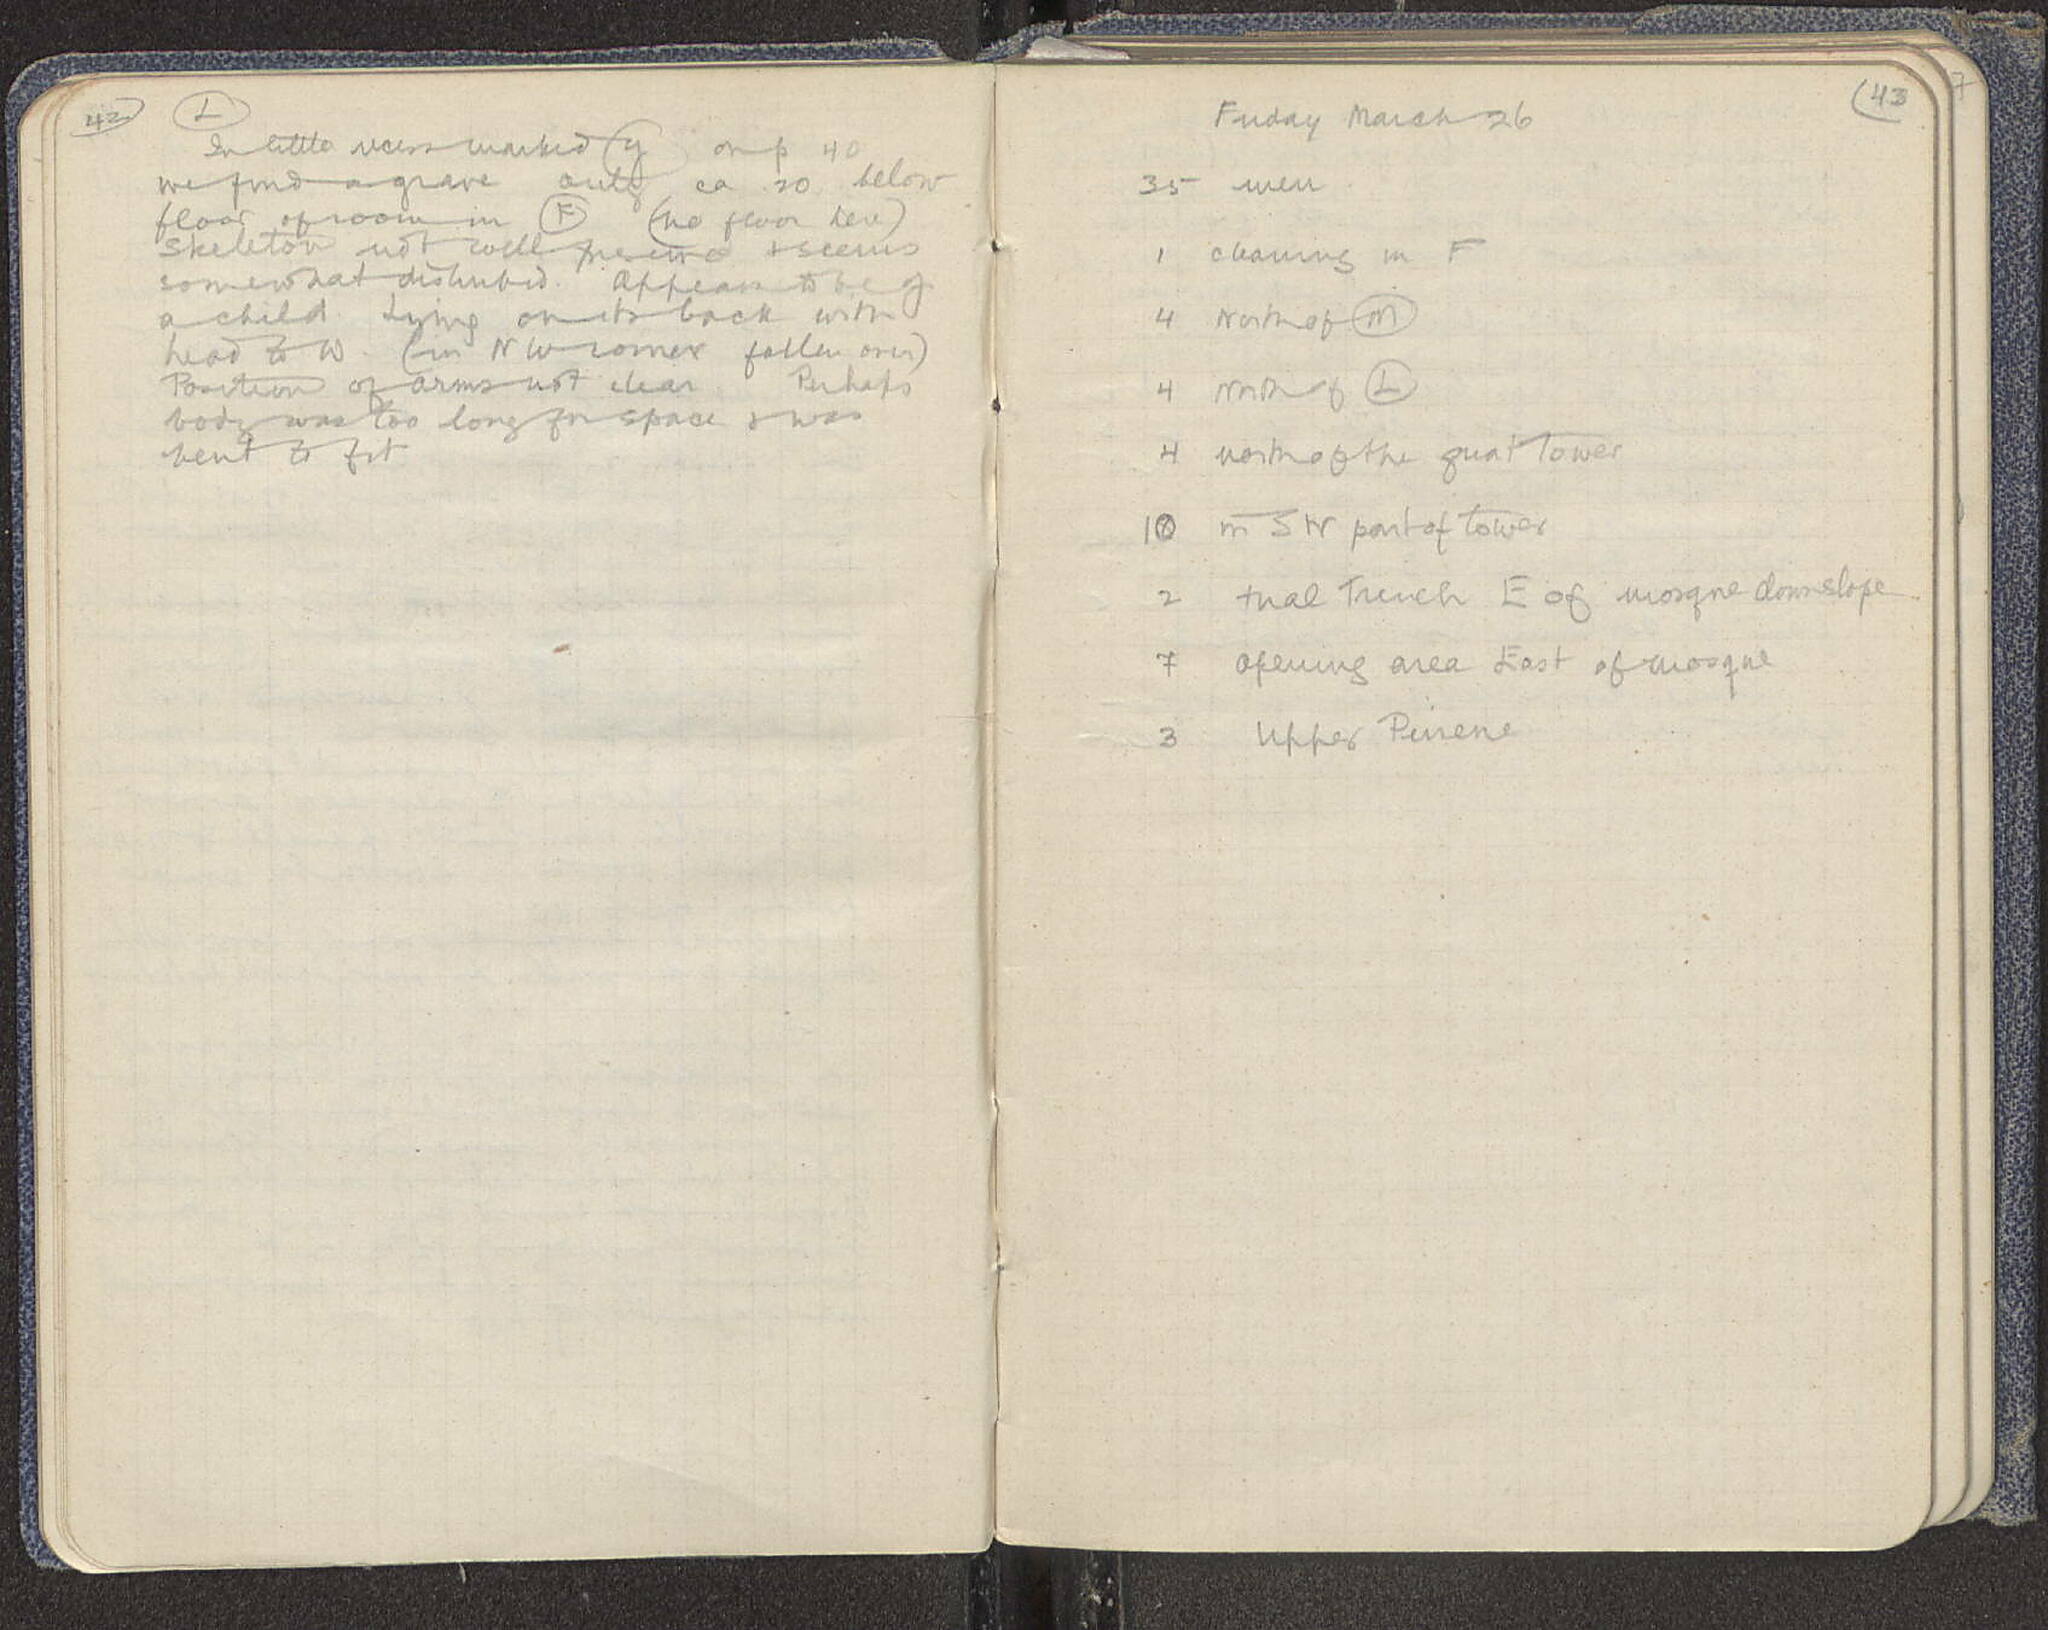 42 L
In little recess marked y on p 40
we find a grave only ca .20 below
floor of room in F (no floor here)
Skeleton not well preserved & seems
somewhat disturbed. Appears to be of
a child. Lying on its back with
head to W. (in NW corner fallen over)
Position of arms not clear. Perhaps
body was too long for space & was
bent to fit
43 7
Friday March 26
35 men
1 cleaning in F
4 North of M
4 North of L
4 north of the great Tower
10 in SW part of tower
2 trial Trench E of mosque down slope
7 opening area East of mosque
3 Upper Peirene